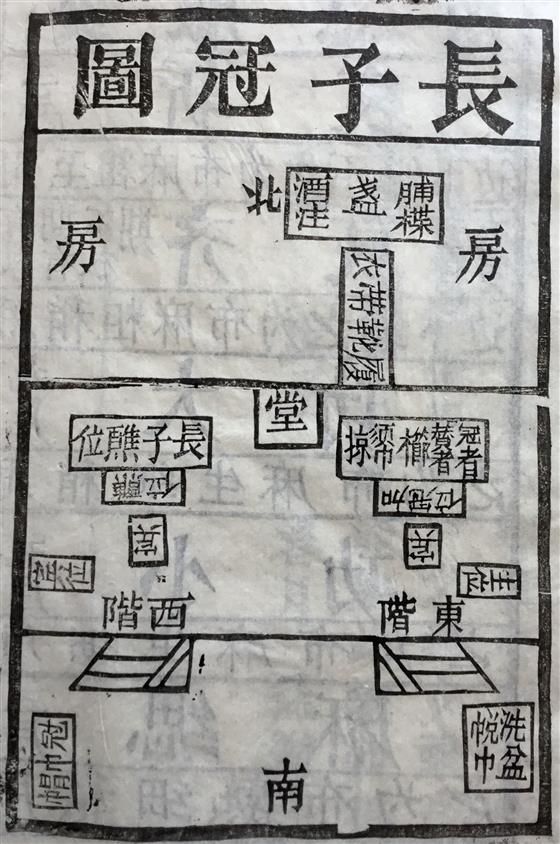 長子冠圖
北
脯楪
盞
酒注
房
房
衣帶靴履
堂
冠者
櫛
掠
長子醮位
加冠位
醮位
賓
賓
主位
賓位
東階
西階
洗盆
帨巾
冠巾帽
南